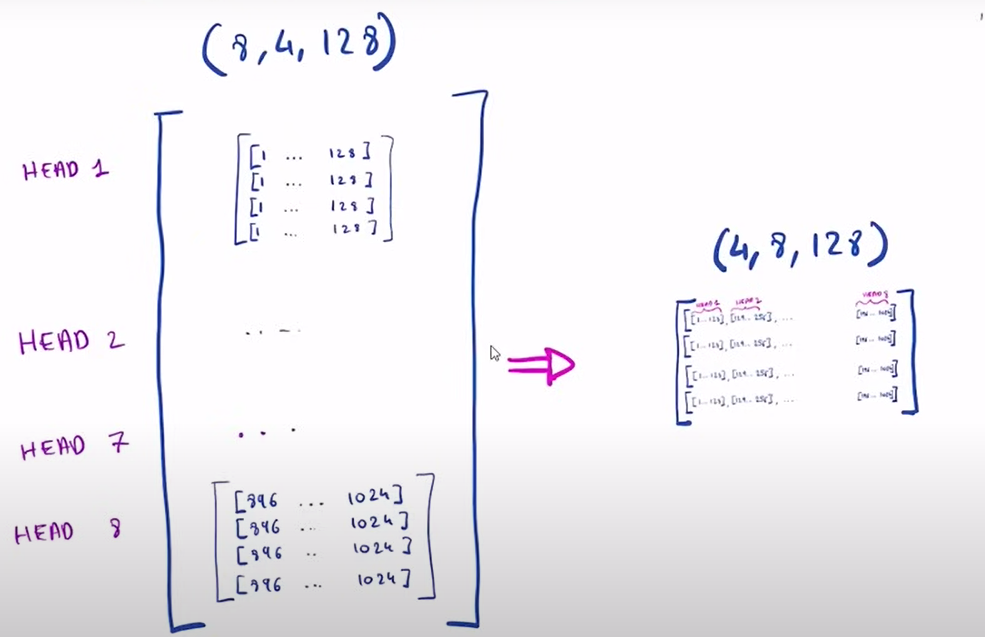 (8, 4, 128)
HEAD 1
[1 ... 128]
[1 ... 128]
[1 ... 128]
[1 ... 128]
HEAD 2
.. ...
HEAD 7
...
HEAD 8
[896 ... 1024]
[896 ... 1024]
[896 .. 1024]
[896 ... 1024]
(4, 8, 128)
HEAD 1 HEAD 2 HEAD 8
[[1...128], [129...256], ...
[[1...128], [129...256], ...
[[1...128], [129...256], ...
[[1...128], [129...256], ...